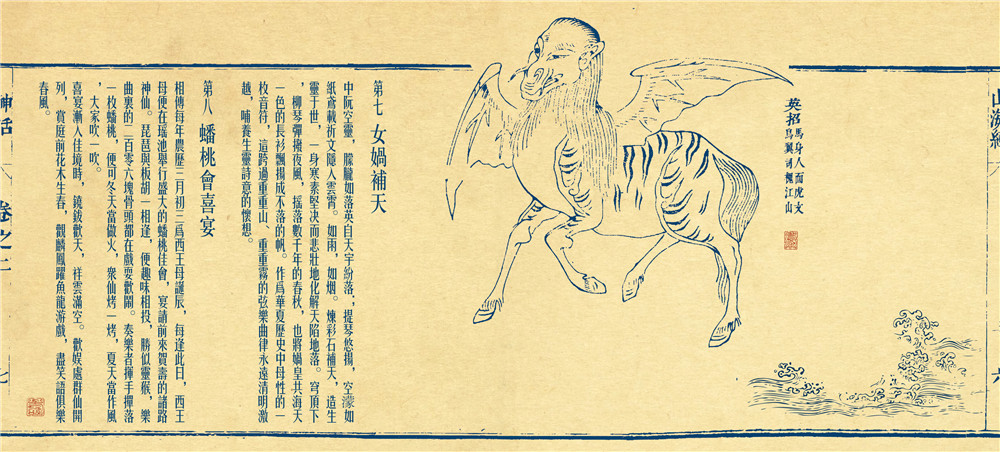 山海經
六
英招
馬身人面虎文
鳥翼司槐江山
第七 女媧補天
中阮空靈，朦朧如落英自天宇紛落；提琴悠揚，空濛如
紙鳶載祈文隱入雲霄。如雨，如烟。煉彩石補天，造生
靈于世，一身寒素堅决而悲壯地化解天陷地落。穹頂下
，柳琴彈撥夜風，搖落數千年的春秋，也將媧皇共海天
一色的長衫飄揚成不落的帆。作爲華夏歷史中母性的一
枚音符，這跨過重重山、重重霧的弦樂曲律永遠清明激
越，哺養生靈詩意的懷想。
第八 蟠桃會喜宴
相傳每年農歷三月初三爲西王母誕辰，每逢此日，西王
母便在瑶池舉行盛大的蟠桃佳會，宴請前來賀壽的諸路
神仙。琵琶與板胡一相逢，便趣味相投，勝似靈猴，樂
曲裏的二百零六塊骨頭都在戲耍歡鬧。奏樂者揮手撣落
一枚蟠桃，便可冬天當做火，衆仙烤一烤，夏天當作風
，大家吹一吹。
喜宴漸入佳境時，鐃鈸歡天，祥雲滿空。歡娱處群仙開
列，賞庭前花木生春，觀麟鳳躍魚龍游戲，盡笑語俱樂
春風。
神話
卷之二
七